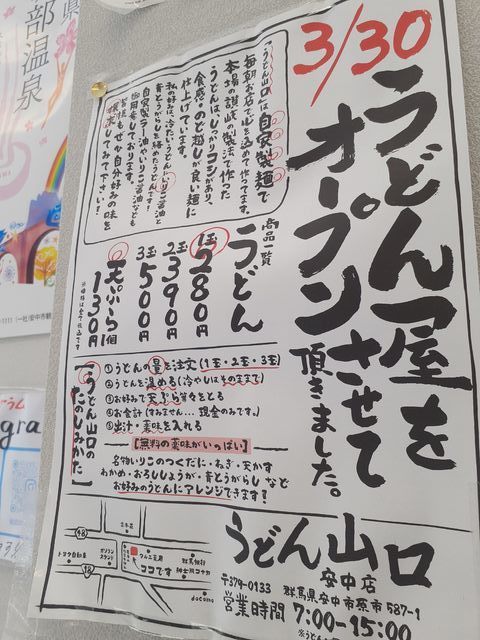 3/30
うどん屋を
オープンさせて
頂きました。
「うどん山口」は自家製麺で
毎朝お店で心を込めて作ってます。
本場の讃岐の製法で作った
うどんは、しっかりコシがあり、
食感・のど越しが良い麺に
仕上げています。
私の好みは、冷たいうどんにいりこ醤油と
青とうがらしを絡めたうどんです!
自家製ラー油やいりこ醤油なども
御用意しております。
皆様もぜひ自分好みの味を
探求してみて下さい!
商品一覧
うどん
1玉 280円
2玉 390円
3玉 500円
天ぷら1個
130円
※価格は全て税込です
「うどん山口の
たのしみかた」
①うどんの量を注文(1玉・2玉・3玉)
②うどんを温める(冷やしはそのままで)
③お好みで天ぷらをとる
④お会計(すみません…現金のみです。)
⑤出汁・薬味を入れる
【無料の薬味がいっぱい】
名物いりこのつくだに・ねぎ・天かす
わかめ・おろししょうが・青とうがらし など
お好みのうどんにアレンジできます!
うどん山口
安中店
〒379-0133 群馬県安中市原市587-1
営業時間 7:00-15:00
48
18
トヨタ自動車
ガソリン
スタンド
マルエ薬局
ココです
群馬銀行
紳士服コナカ
docomo
県
部温泉
gra